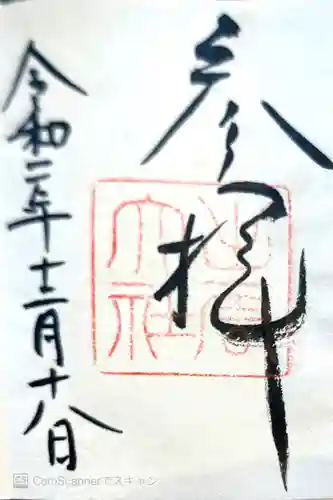 参拝
令和二年十二月十八日
CS CamScannerでスキャン